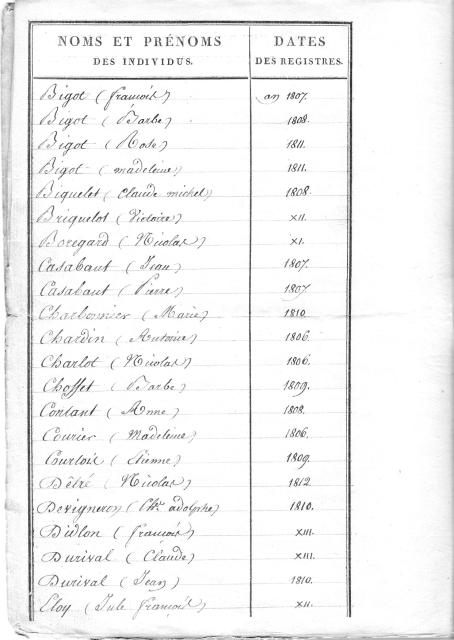 NOMS ET PRÉNOMS DES INDIVIDUS. DATES DES REGISTRES.
Bigot (françois) an 1807.
Bigot (Barbe) 1808.
Bigot (Rose) 1811.
Bigot (madeleine) 1811.
Biquelet (Claude michel) 1808.
Briquelot (Victoire) XII.
Boregard (Nicolas) XI.
Casabaut (Jean) 1807.
Casabaut (Pierre) 1807
Charbonnier (Marie) 1810
Chardin (Antoine) 1806.
Charlot (Nicolas) 1806.
Chosset (Barbe) 1809.
Contant (Anne) 1808.
Courier (Madeleine) 1806.
Courtois (Etienne) 1809.
Détré (Nicolas) 1812.
Devigneron (Chr. adolphe) 1810.
Didlon (françois) XIII.
Durival (Claude) XIII.
Durival (Jean) 1810.
Eloy (Jule françois) XII.